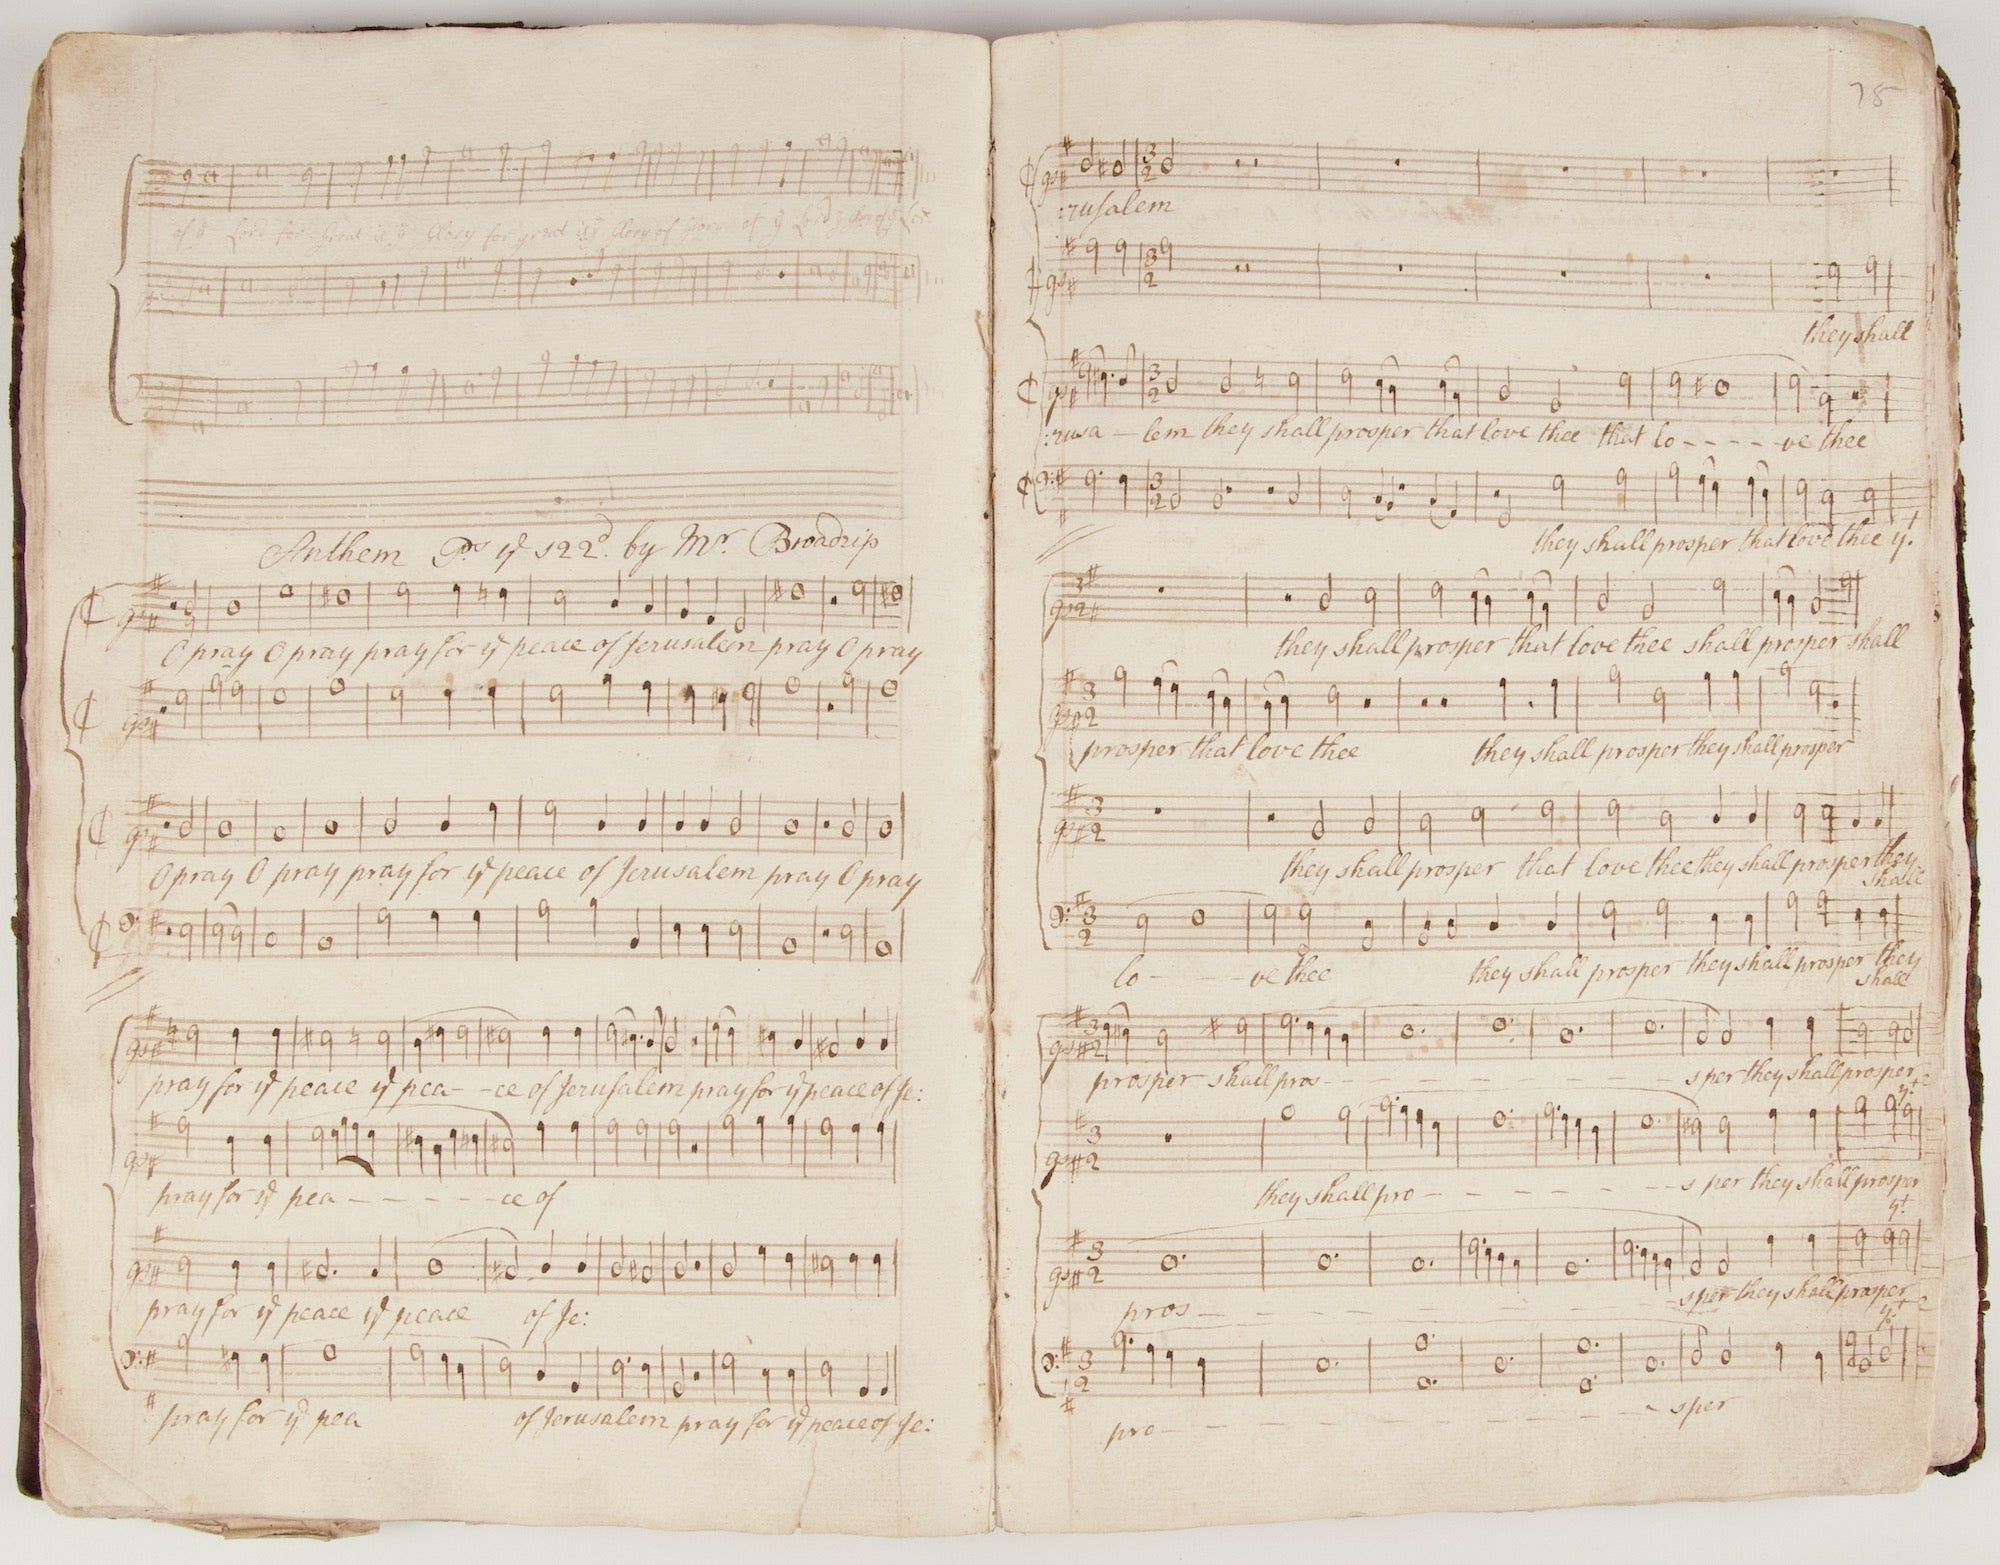 of yͤ Lord for Great is yͤ Glory for great is yͤ Glory of Glory of yͤ Lord yͤ Glory of yͤ Lord
Anthem Pˢ yͤ 122ᵈ. by Mʳ. Broadrip
O pray O pray pray for yͤ peace of Jerusalem pray O pray
O pray O pray pray for yͤ peace of Jerusalem pray O pray
pray for yͤ peace yͤ pea - - ce of Jerusalem pray for yͤ peace of Je:
pray for yͤ pea - - - - - - ce of
pray for yͤ peace yͤ peace of Je:
pray for yͤ pea of Jerusalem pray for yͤ peace of Je:
78
:rusalem
they shall
:rusa - lem they shall prosper that love thee that lo - - - - ve thee
they shall prosper that love thee yᵗ
they shall prosper that love thee shall prosper shall
prosper that love thee they shall prosper they shall prosper
they shall prosper that love thee they shall prosper they shall
lo - - - ve thee they shall prosper they shall prosper they shall
prosper shall pros - - - - - - - - sper they shall prosper yᵗ
they shall pro - - - - - - - s per they shall prosper yᵗ
pros - - - - - - - - - - sper they shall prosper yᵗ
pro - - - - - - - - - - sper